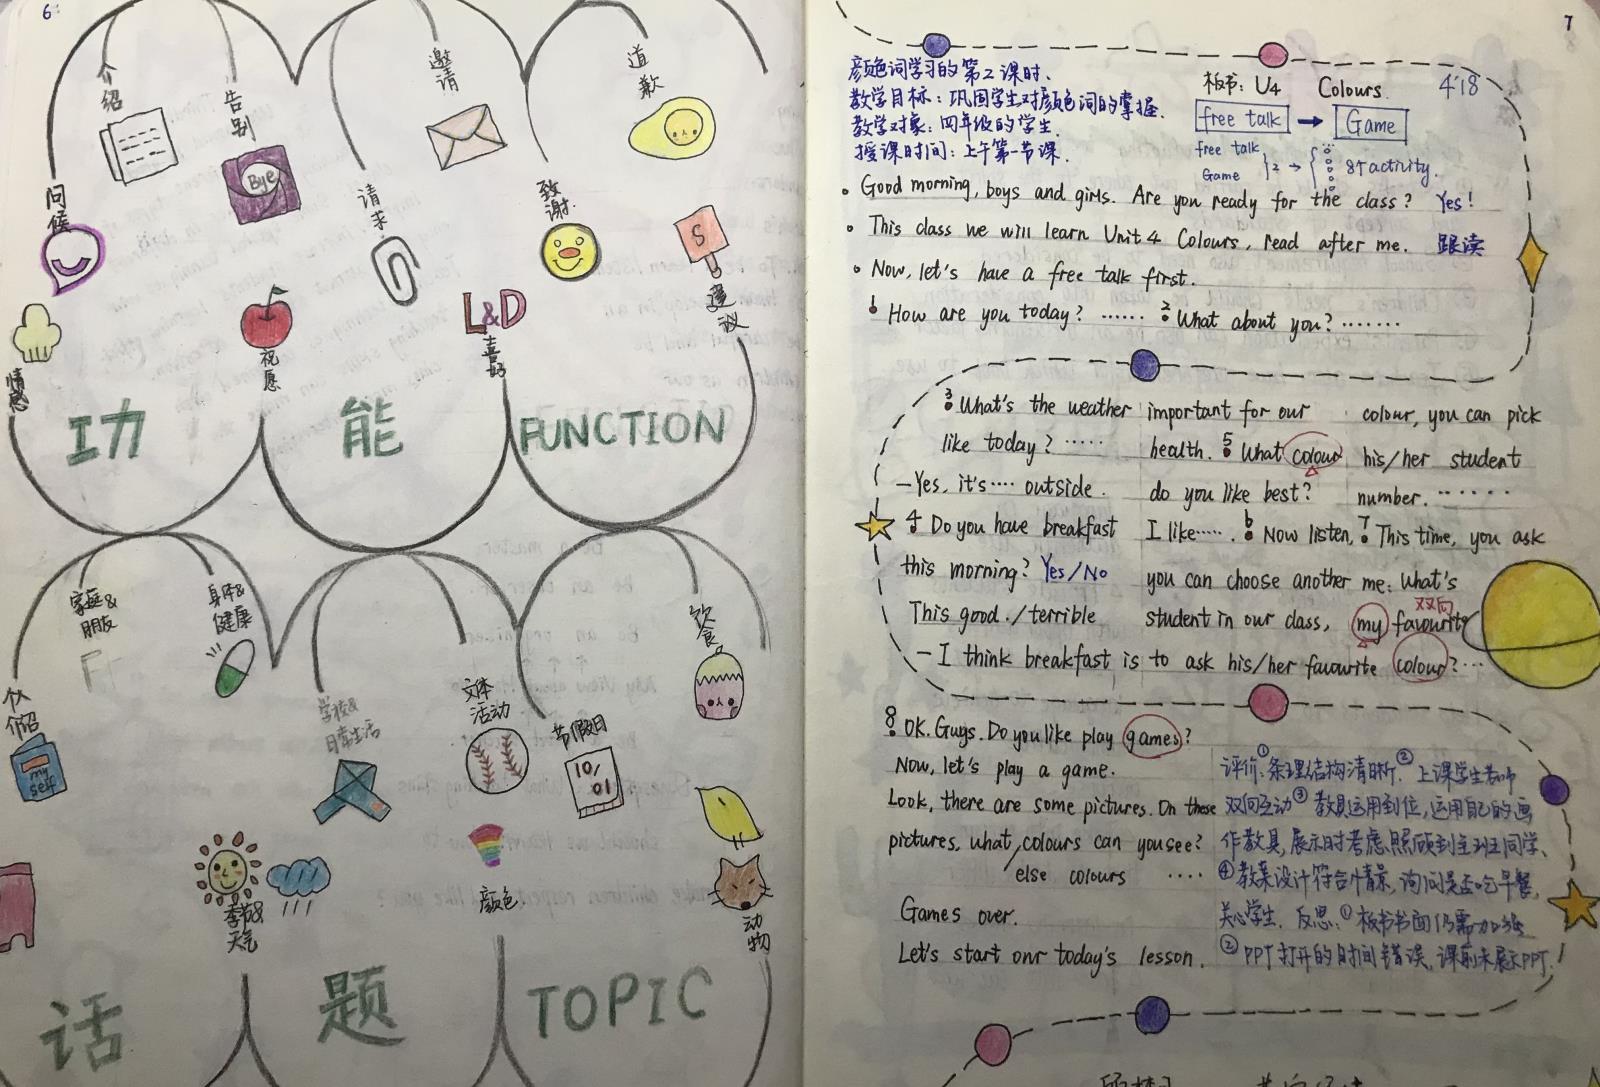 6
介绍
告别
Bye
问候
情感
祝愿
邀请
请求
L&D
喜好
道歉
致谢
S
建议
功能 FUNCTION
家庭&
朋友
身体&
健康
个人
介绍
my
self
学校&
日常生活
文体
活动
节假日
10/
01
饮食
季节&
天气
颜色
动物
话题 TOPIC
7
颜色词学习的第2课时.
教学目标: 巩固学生对颜色词的掌握.
教学对象: 四年级的学生.
授课时间: 上午第一节课.
板书: U4 Colours. 4'18
free talk → Game
free talk
Game
2 → 8个activity.
Good morning, boys and girls. Are you ready for the class? Yes!
This class we will learn Unit 4 Colours, read after me. 跟读
Now, let's have a free talk first.
1 How are you today? ...... 2 What about you? .......
3 What's the weather
like today? .....
—Yes, it's.... outside.
4 Do you have breakfast
this morning? Yes/No
This good./terrible
—I think breakfast is
important for our
health. 5 What colour
do you like best?
I like..... 6 Now listen,
you can choose another
student in our class,
to ask his/her favourite
colour, you can pick
his/her student
number. .......
7 This time, you ask
me: What's
双向
my favourite
colour? ...
8 OK. Guys. Do you like play games?
Now, let's play a game.
Look, there are some pictures. On these
pictures, what colours can you see?
else colours ....
Games over.
Let's start our today's lesson.
评价: ①条理结构清晰. ②上课学生老师
双向互动 ③教具运用到位, 运用自己的画
作教具, 展示时考虑照顾到全班同学.
④教案设计符合情景, 询问是否吃早餐,
关心学生. 反思: ①板书书面仍需加强
②PPT打开的时间错误, 课前未展示PPT.